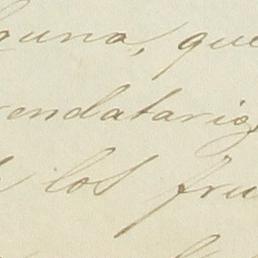 guna, que
rendatario,
los fru